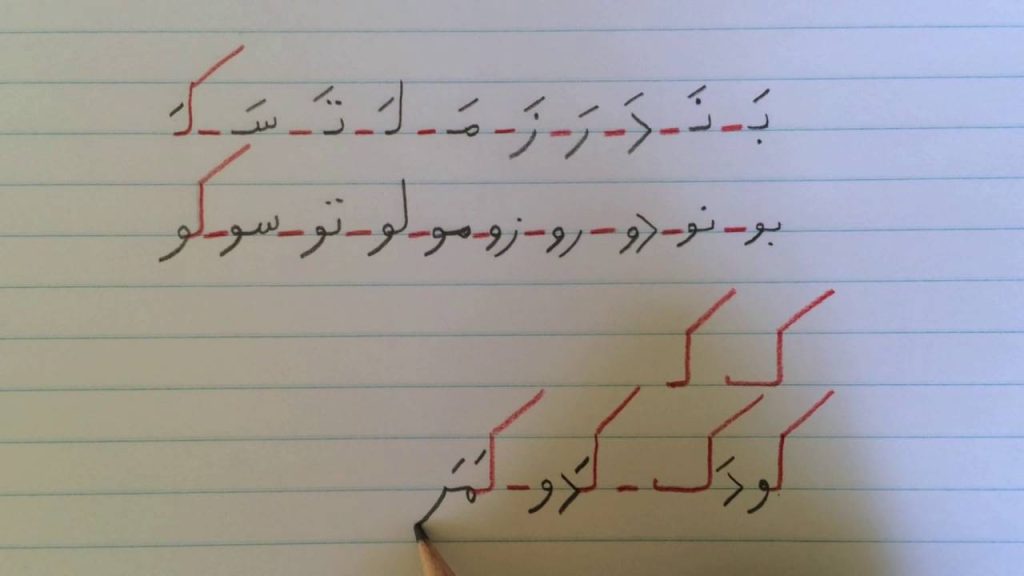 بَـ - نَـ - دَ - رَ - زَ - مَـ - لَـ - تَـ - سَـ - کَـ
بو - نو - دو - رو - زو - مو - لو - تو - سو - کو
ک کـ
کودَک - کَدو - کَمَر